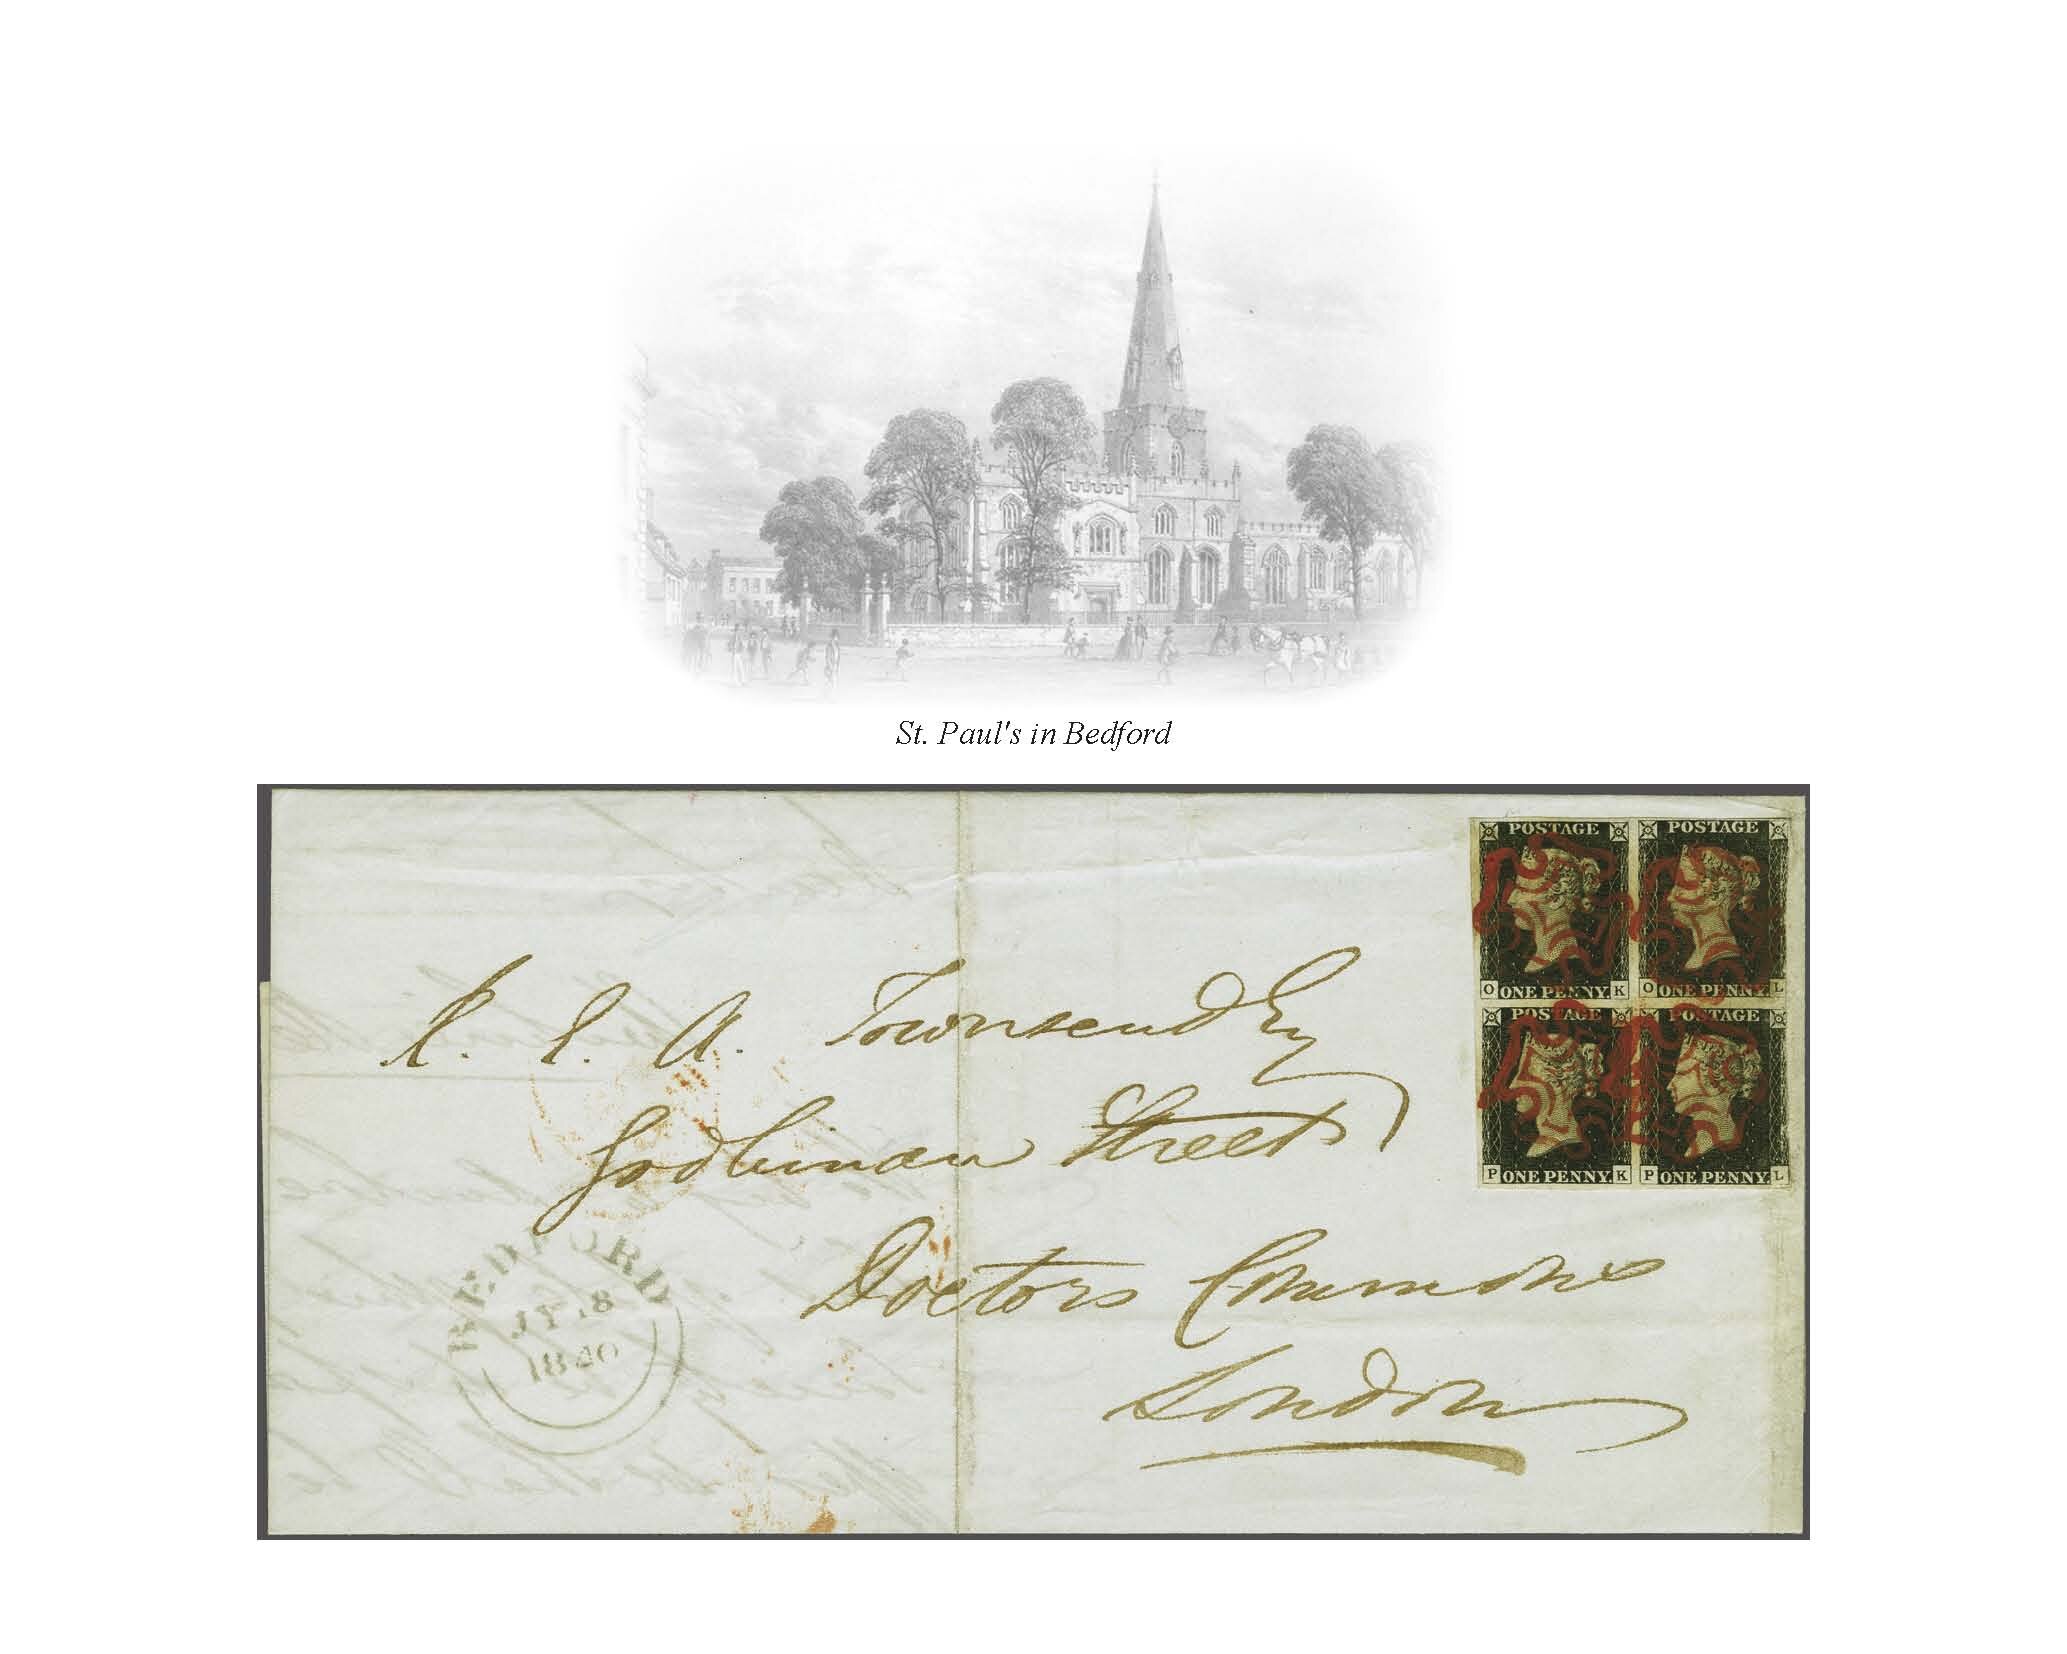 St. Paul's in Bedford
POSTAGE POSTAGE
O ONE PENNY. K O ONE PENNY. L
POSTAGE POSTAGE
P ONE PENNY. K P ONE PENNY. L
A. Townsend Esq
Godliman Street
Doctors Commons
London
BEDFORD
JY 18
1840